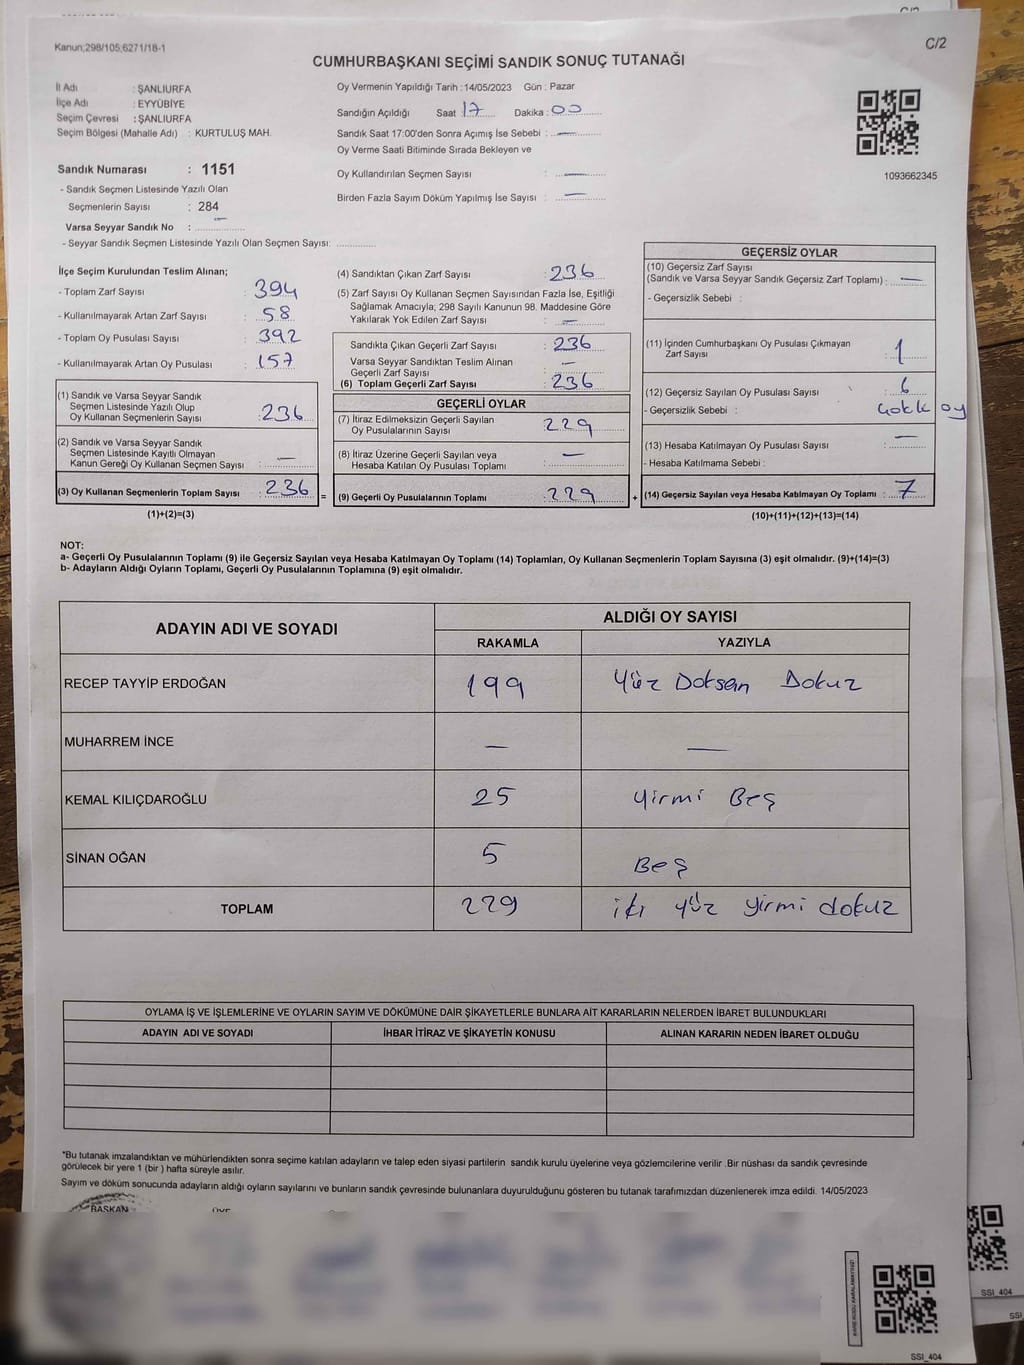 C/2
Kanun;298/105;6271/18-1
CUMHURBAŞKANI SEÇİMİ SANDIK SONUÇ TUTANAĞI
İl Adı : ŞANLIURFA
İlçe Adı : EYYÜBİYE
Seçim Çevresi : ŞANLIURFA
Seçim Bölgesi (Mahalle Adı) : KURTULUŞ MAH.
Sandık Numarası : 1151
- Sandık Seçmen Listesinde Yazılı Olan
Seçmenlerin Sayısı : 284
Varsa Seyyar Sandık No : —
- Seyyar Sandık Seçmen Listesinde Yazılı Olan Seçmen Sayısı: ..............
Oy Vermenin Yapıldığı Tarih : 14/05/2023 Gün : Pazar
Sandığın Açıldığı Saat 17 Dakika : 00
Sandık Saat 17:00'den Sonra Açımış İse Sebebi : —
Oy Verme Saati Bitiminde Sırada Bekleyen ve
Oy Kullandırılan Seçmen Sayısı : —
Birden Fazla Sayım Döküm Yapılmış İse Sayısı : —
1093662345
İlçe Seçim Kurulundan Teslim Alınan;
- Toplam Zarf Sayısı : 394
- Kullanılmayarak Artan Zarf Sayısı : 58
- Toplam Oy Pusulası Sayısı : 392
- Kullanılmayarak Artan Oy Pusulası : 157
(1) Sandık ve Varsa Seyyar Sandık
Seçmen Listesinde Yazılı Olup
Oy Kullanan Seçmenlerin Sayısı : 236
(2) Sandık ve Varsa Seyyar Sandık
Seçmen Listesinde Kayıtlı Olmayan
Kanun Gereği Oy Kullanan Seçmen Sayısı : —
(3) Oy Kullanan Seçmenlerin Toplam Sayısı : 236 =
(1)+(2)=(3)
(4) Sandıktan Çıkan Zarf Sayısı : 236
(5) Zarf Sayısı Oy Kullanan Seçmen Sayısından Fazla İse, Eşitliği
Sağlamak Amacıyla; 298 Sayılı Kanunun 98. Maddesine Göre
Yakılarak Yok Edilen Zarf Sayısı : —
Sandıkta Çıkan Geçerli Zarf Sayısı : 236
Varsa Seyyar Sandıktan Teslim Alınan
Geçerli Zarf Sayısı : —
(6) Toplam Geçerli Zarf Sayısı : 236
GEÇERLİ OYLAR
(7) İtiraz Edilmeksizin Geçerli Sayılan
Oy Pusulalarının Sayısı : 229
(8) İtiraz Üzerine Geçerli Sayılan veya
Hesaba Katılan Oy Pusulası Toplamı : —
(9) Geçerli Oy Pusulalarının Toplamı : 229 +
GEÇERSİZ OYLAR
(10) Geçersiz Zarf Sayısı
(Sandık ve Varsa Seyyar Sandık Geçersiz Zarf Toplamı) : —
- Geçersizlik Sebebi :
(11) İçinden Cumhurbaşkanı Oy Pusulası Çıkmayan
Zarf Sayısı : 1
(12) Geçersiz Sayılan Oy Pusulası Sayısı : 6
- Geçersizlik Sebebi : oy
(13) Hesaba Katılmayan Oy Pusulası Sayısı : —
- Hesaba Katılmama Sebebi :
(14) Geçersiz Sayılan veya Hesaba Katılmayan Oy Toplamı : 7
(10)+(11)+(12)+(13)=(14)
NOT:
a- Geçerli Oy Pusulalarının Toplamı (9) ile Geçersiz Sayılan veya Hesaba Katılmayan Oy Toplamı (14) Toplamları, Oy Kullanan Seçmenlerin Toplam Sayısına (3) eşit olmalıdır. (9)+(14)=(3)
b- Adayların Aldığı Oyların Toplamı, Geçerli Oy Pusulalarının Toplamına (9) eşit olmalıdır.
ADAYIN ADI VE SOYADI ALDIĞI OY SAYISI
RAKAMLA YAZIYLA
RECEP TAYYİP ERDOĞAN 199 Yüz Doksan Dokuz
MUHARREM İNCE — —
KEMAL KILIÇDAROĞLU 25 Yirmi Beş
SİNAN OĞAN 5 Beş
TOPLAM 229 iki yüz yirmi dokuz
OYLAMA İŞ VE İŞLEMLERİNE VE OYLARIN SAYIM VE DÖKÜMÜNE DAİR ŞİKAYETLERLE BUNLARA AİT KARARLARIN NELERDEN İBARET BULUNDUKLARI
ADAYIN ADI VE SOYADI İHBAR İTİRAZ VE ŞİKAYETİN KONUSU ALINAN KARARIN NEDEN İBARET OLDUĞU
*Bu tutanak imzalandıktan ve mühürlendikten sonra seçime katılan adayların ve talep eden siyasi partilerin sandık kurulu üyelerine veya gözlemcilerine verilir .Bir nüshası da sandık çevresinde
görülecek bir yere 1 (bir ) hafta süreyle asılır.
Sayım ve döküm sonucunda adayların aldığı oyların sayılarını ve bunların sandık çevresinde bulunanlara duyurulduğunu gösteren bu tutanak tarafımızdan düzenlenerek imza edildi. 14/05/2023
BAŞKAN ÜYE
SSI_404
SSI_404
SSI